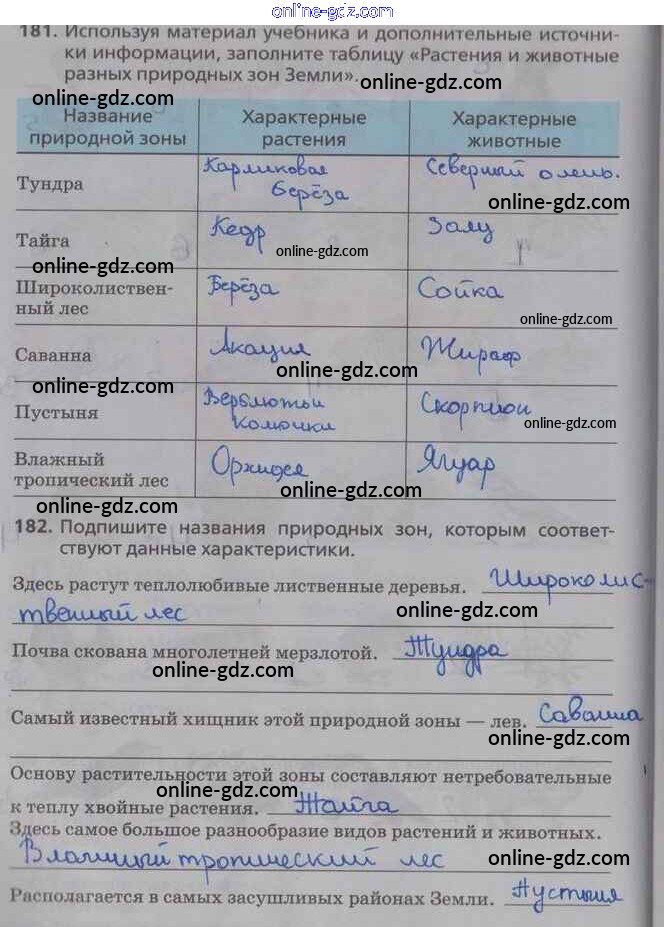 online-gdz.com
181. Используя материал учебника и дополнительные источни-
ки информации, заполните таблицу «Растения и животные
разных природных зон Земли».
online-gdz.com
online-gdz.com
Название природной зоны
Характерные растения
Характерные животные
Тундра
Карликовая берёза
Северный олень.
online-gdz.com
Тайга
Кедр
online-gdz.com
online-gdz.com
Широколиствен-
ный лес
Берёза
Сойка
online-gdz.com
Саванна
Акация
Жираф
online-gdz.com
online-gdz.com
Пустыня
Верблюжьи колючки
Скорпион
online-gdz.com
Влажный
тропический лес
Орхидея
Ягуар
online-gdz.com
online-gdz.com
182. Подпишите названия природных зон, которым соответ-
ствуют данные характеристики.
Здесь растут теплолюбивые лиственные деревья. Широколис-
твенный лес
online-gdz.com
Почва скована многолетней мерзлотой. Тундра
online-gdz.com
Самый известный хищник этой природной зоны — лев. Саванна
online-gdz.com
Основу растительности этой зоны составляют нетребовательные
к теплу хвойные растения. Тайга
Здесь самое большое разнообразие видов растений и животных.
Влажный тропический лес
online-gdz.com
Располагается в самых засушливых районах Земли. Пустыня
online-gdz.com